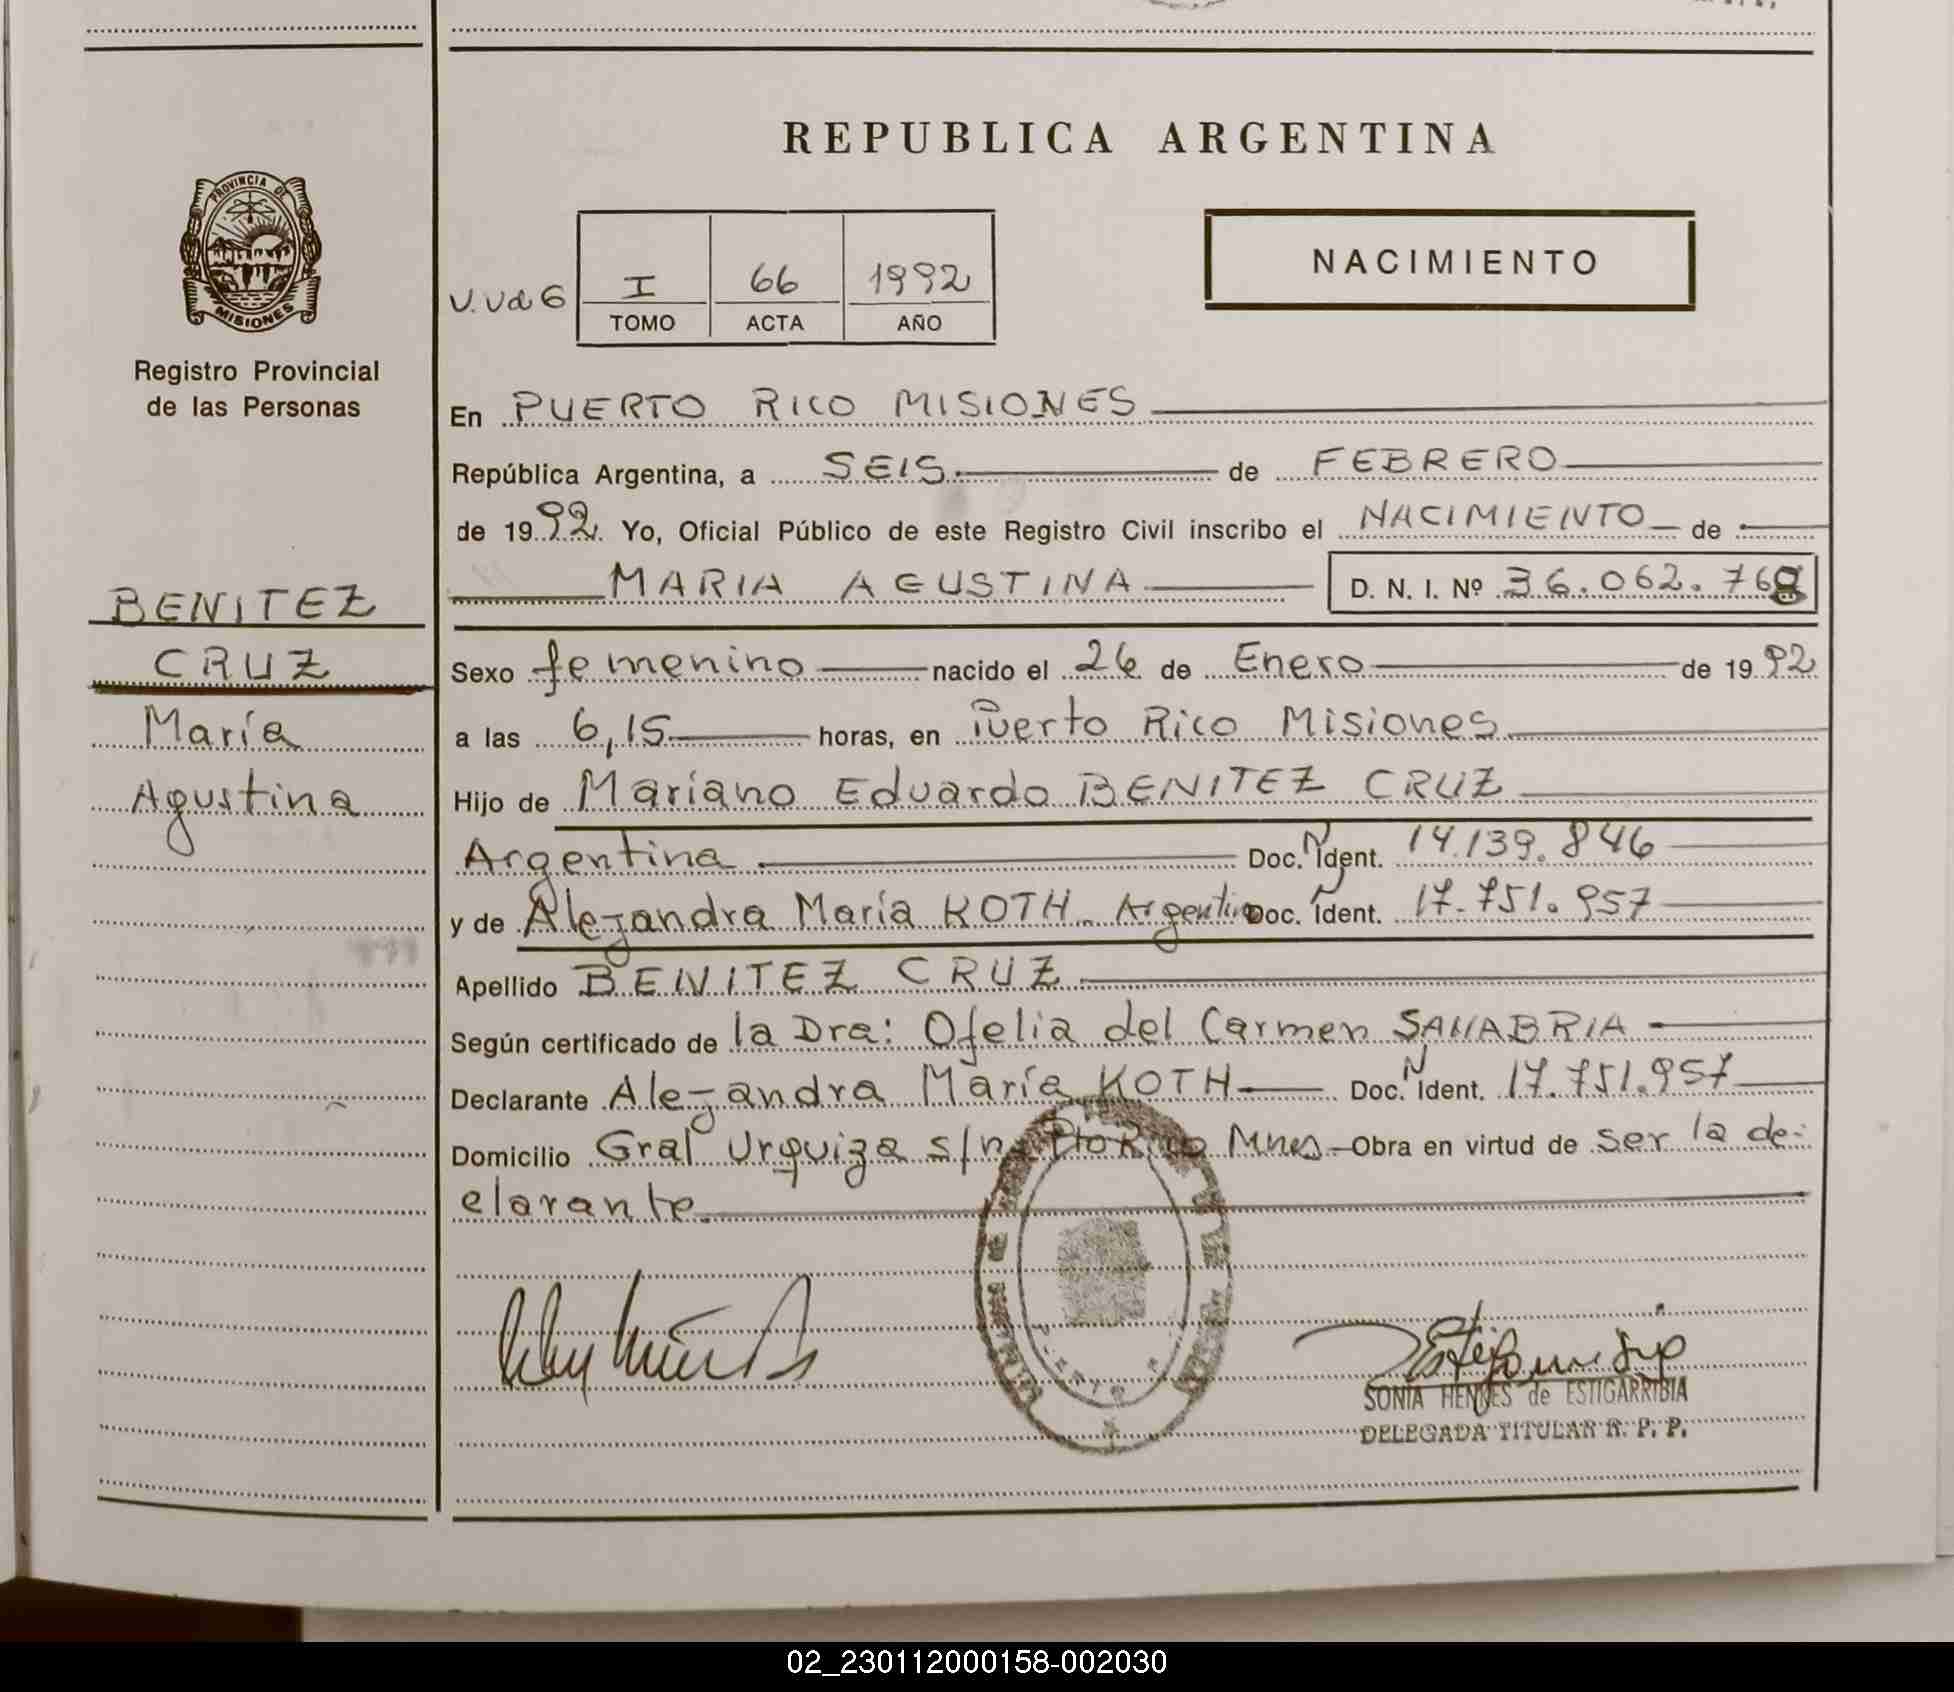 REPUBLICA ARGENTINA
PROVINCIA DE
MISIONES
Registro Provincial
de las Personas
I 66 1992
TOMO ACTA AÑO
NACIMIENTO
En PUERTO RICO MISIONES
República Argentina, a SEIS de FEBRERO
de 1992. Yo, Oficial Público de este Registro Civil inscribo el NACIMIENTO de
MARIA AGUSTINA D. N. I. Nº 36.062.76
BENITEZ
CRUZ
María
Agustina
Sexo femenino nacido el 26 de Enero de 1992
a las 6,15 horas, en Puerto Rico Misiones
Hijo de Mariano Eduardo BENITEZ CRUZ
Argentina Doc. N Ident. 14.139.846
y de Alejandra María KOTH Argentina Doc. N Ident. 17.751.957
Apellido BENITEZ CRUZ
Según certificado de la Dra: Ofelia del Carmen SANABRIA
Declarante Alejandra María KOTH Doc. N Ident. 17.751.957
Domicilio Gral Urquiza s/n Pto Rico Mnes Obra en virtud de ser la de-
clarante.
SONIA HENNES de ESTIGARRIBIA
DELEGADA TITULAR R. P. P.
02_230112000158-002030